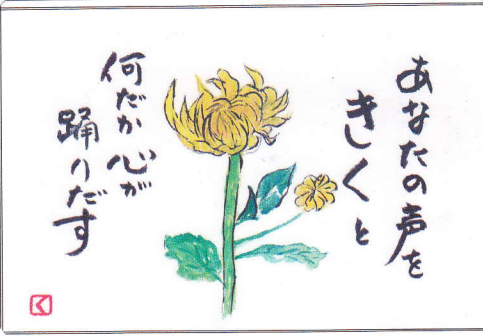 あなたの声を
きくと
何だか心が
踊りだす
く